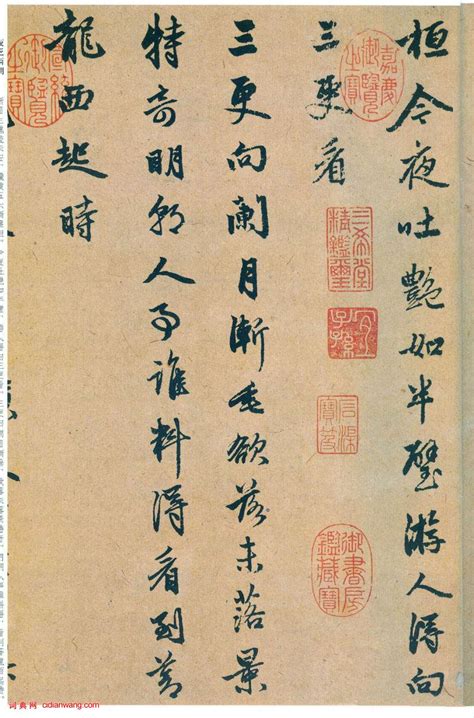 桓今夜吐艷如半璧游人得向
三更看
三更向闌月漸垂欲落未落景
特奇明朝人事誰料得看到蒼
龍西起時
嘉慶御覽之寶
三希堂精鑑璽
宜子孫
石渠寶笈
御書房鑑藏寶
宣統御覽之寶
词典网 cidianwang.com